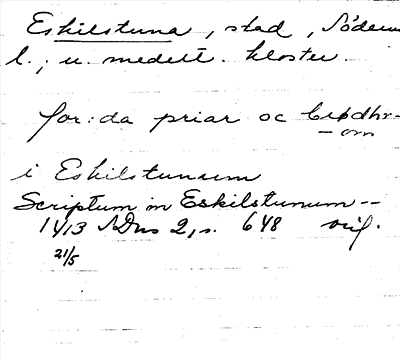 Eskilstuna, stad, Söderm
l.; u. medelt. kloster.
for:da priar oc brødhr-
-om
i Eskilstunum
Scriptum in Eskilstunum --
1413 SDns 2, s. 648 orig.
21/5